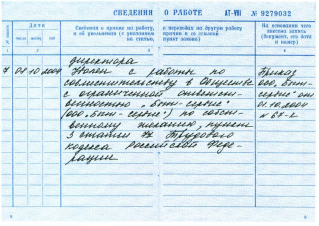 СВЕДЕНИЯ О РАБОТЕ АТ-VIII № 9279032
Дата
Сведения о приеме на работу, о переводах на другую работу
и об увольнении (с указанием причин и со ссылкой
на статью, пункт закона)
На основании чего
внесена запись
(документ, его дата
и номер)
1 2 3 4
директора
7 01 10 2004 Уволен с работы по Приказ
совместительству в Обществе ООО „Бэтт-
с ограниченной ответст- сервис" от
венностью „Бэтт-сервис" 01.10.2004
(ООО „Бэтт-сервис") по собст-
венному желанию, пункт
3 статьи 77 Трудового
кодекса Российской Феде-
рации